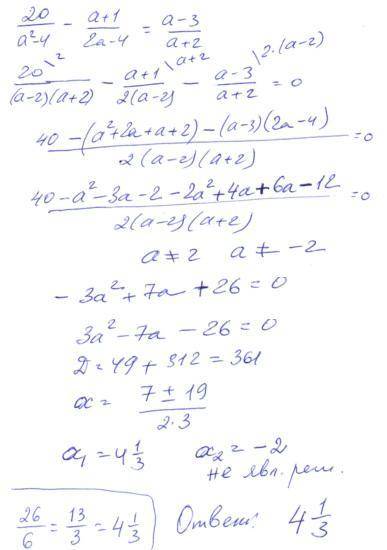 20/(a²-4) - (a+1)/(2a-4) = (a-3)/(a+2)
20\²/((a-2)(a+2)) - (a+1)\ᵃ⁺²/(2(a-2)) - (a-3)\²·⁽ᵃ⁻²⁾/(a+2) = 0
(40 - (a²+2a+a+2) - (a-3)(2a-4))/(2(a-2)(a+2)) = 0
(40 - a² - 3a - 2 - 2a² + 4a + 6a - 12)/(2(a-2)(a+2)) = 0
a ≠ 2 a ≠ -2
- 3a² + 7a + 26 = 0
3a² - 7a - 26 = 0
D = 49 + 312 = 361
a = (7 ± 19)/(2·3)
a₁ = 4 1/3 a₂ = -2
не явл. реш.
26/6 = 13/3 = 4 1/3 Ответ: 4 1/3